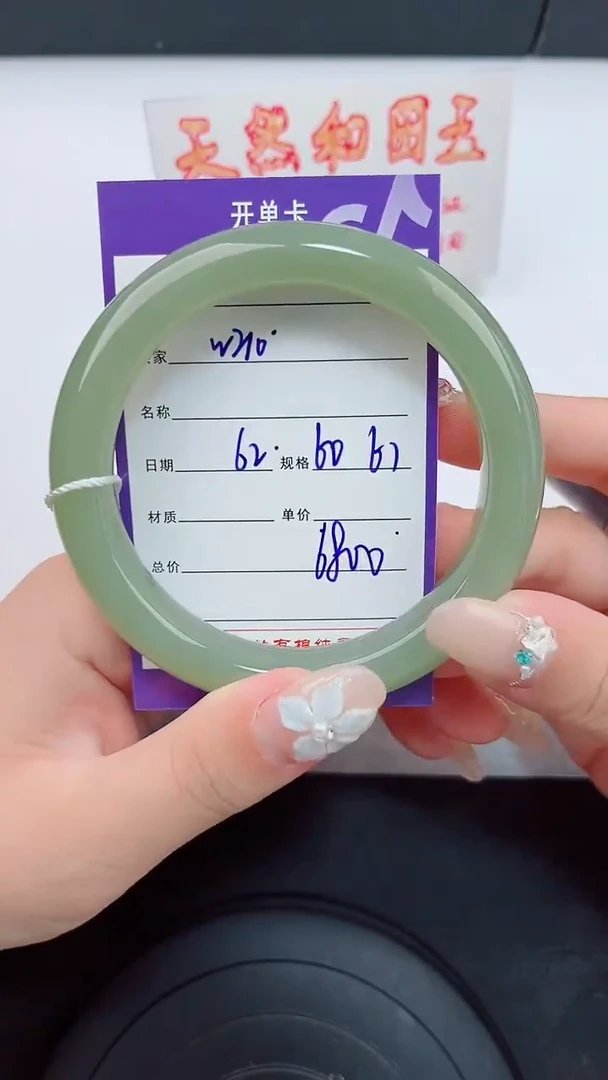 天然和田玉
开单卡
家 W210
名称
日期 62 规格 60 67
材质 单价
总价 6800